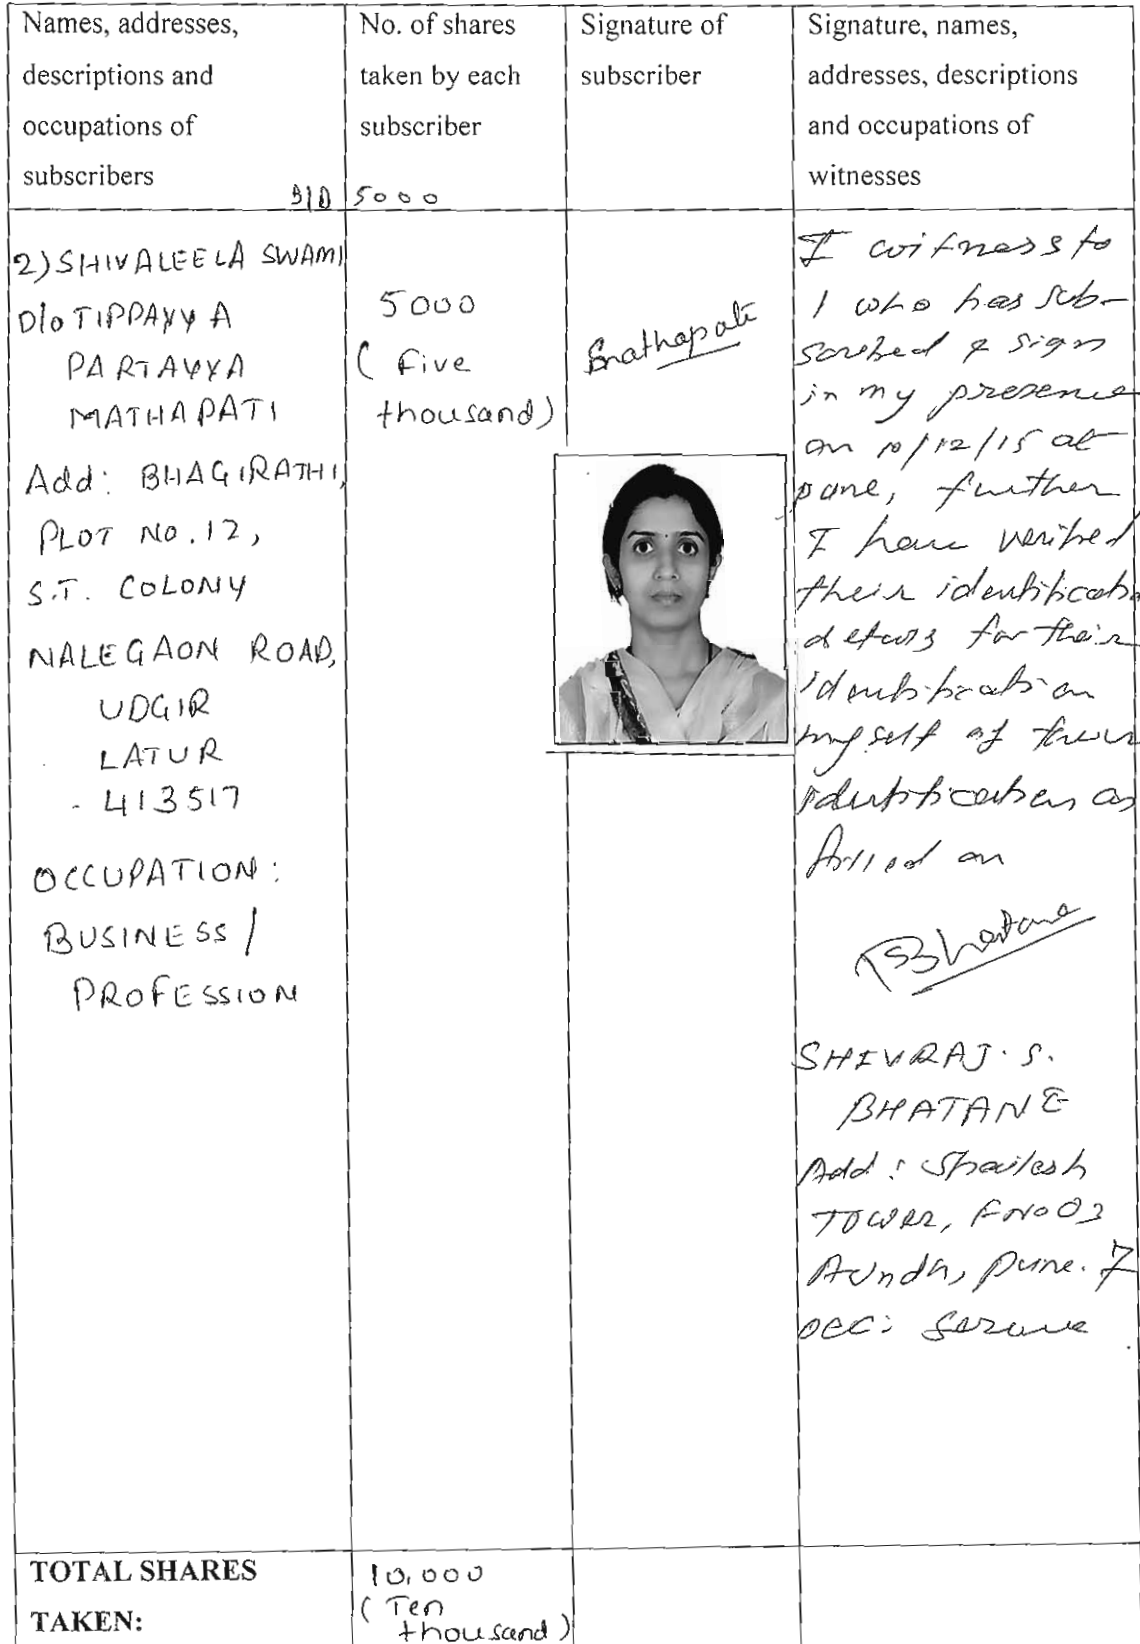 Names, addresses,
descriptions and
occupations of
subscribers
B/D
No. of shares
taken by each
subscriber
5000
Signature of
subscriber
Signature, names,
addresses, descriptions
and occupations of
witnesses
2) SHIVALEELA SWAMI
D/o TIPPAYYA
PARTAYYA
MATHAPATI
Add: BHAGIRATHI,
PLOT NO. 12,
S.T. COLONY
NALEGAON ROAD,
UDGIR
LATUR
- 413517
OCCUPATION:
BUSINESS /
PROFESSION
5000
( five
thousand)
Smathapati
I witness to
1 who has sub-
scribed & sign
in my presence
on 10/12/15 at
pune, further
I have verified
their identificatio
details for their
identification
myself of their
identification as
filled on
SBhatane
SHIVRAJ. S.
BHATANE
Add: Shailesh
TOWER, FNO 03
Aundh, pune. 7
occ: Service
TOTAL SHARES
TAKEN:
10,000
( Ten
thousand)